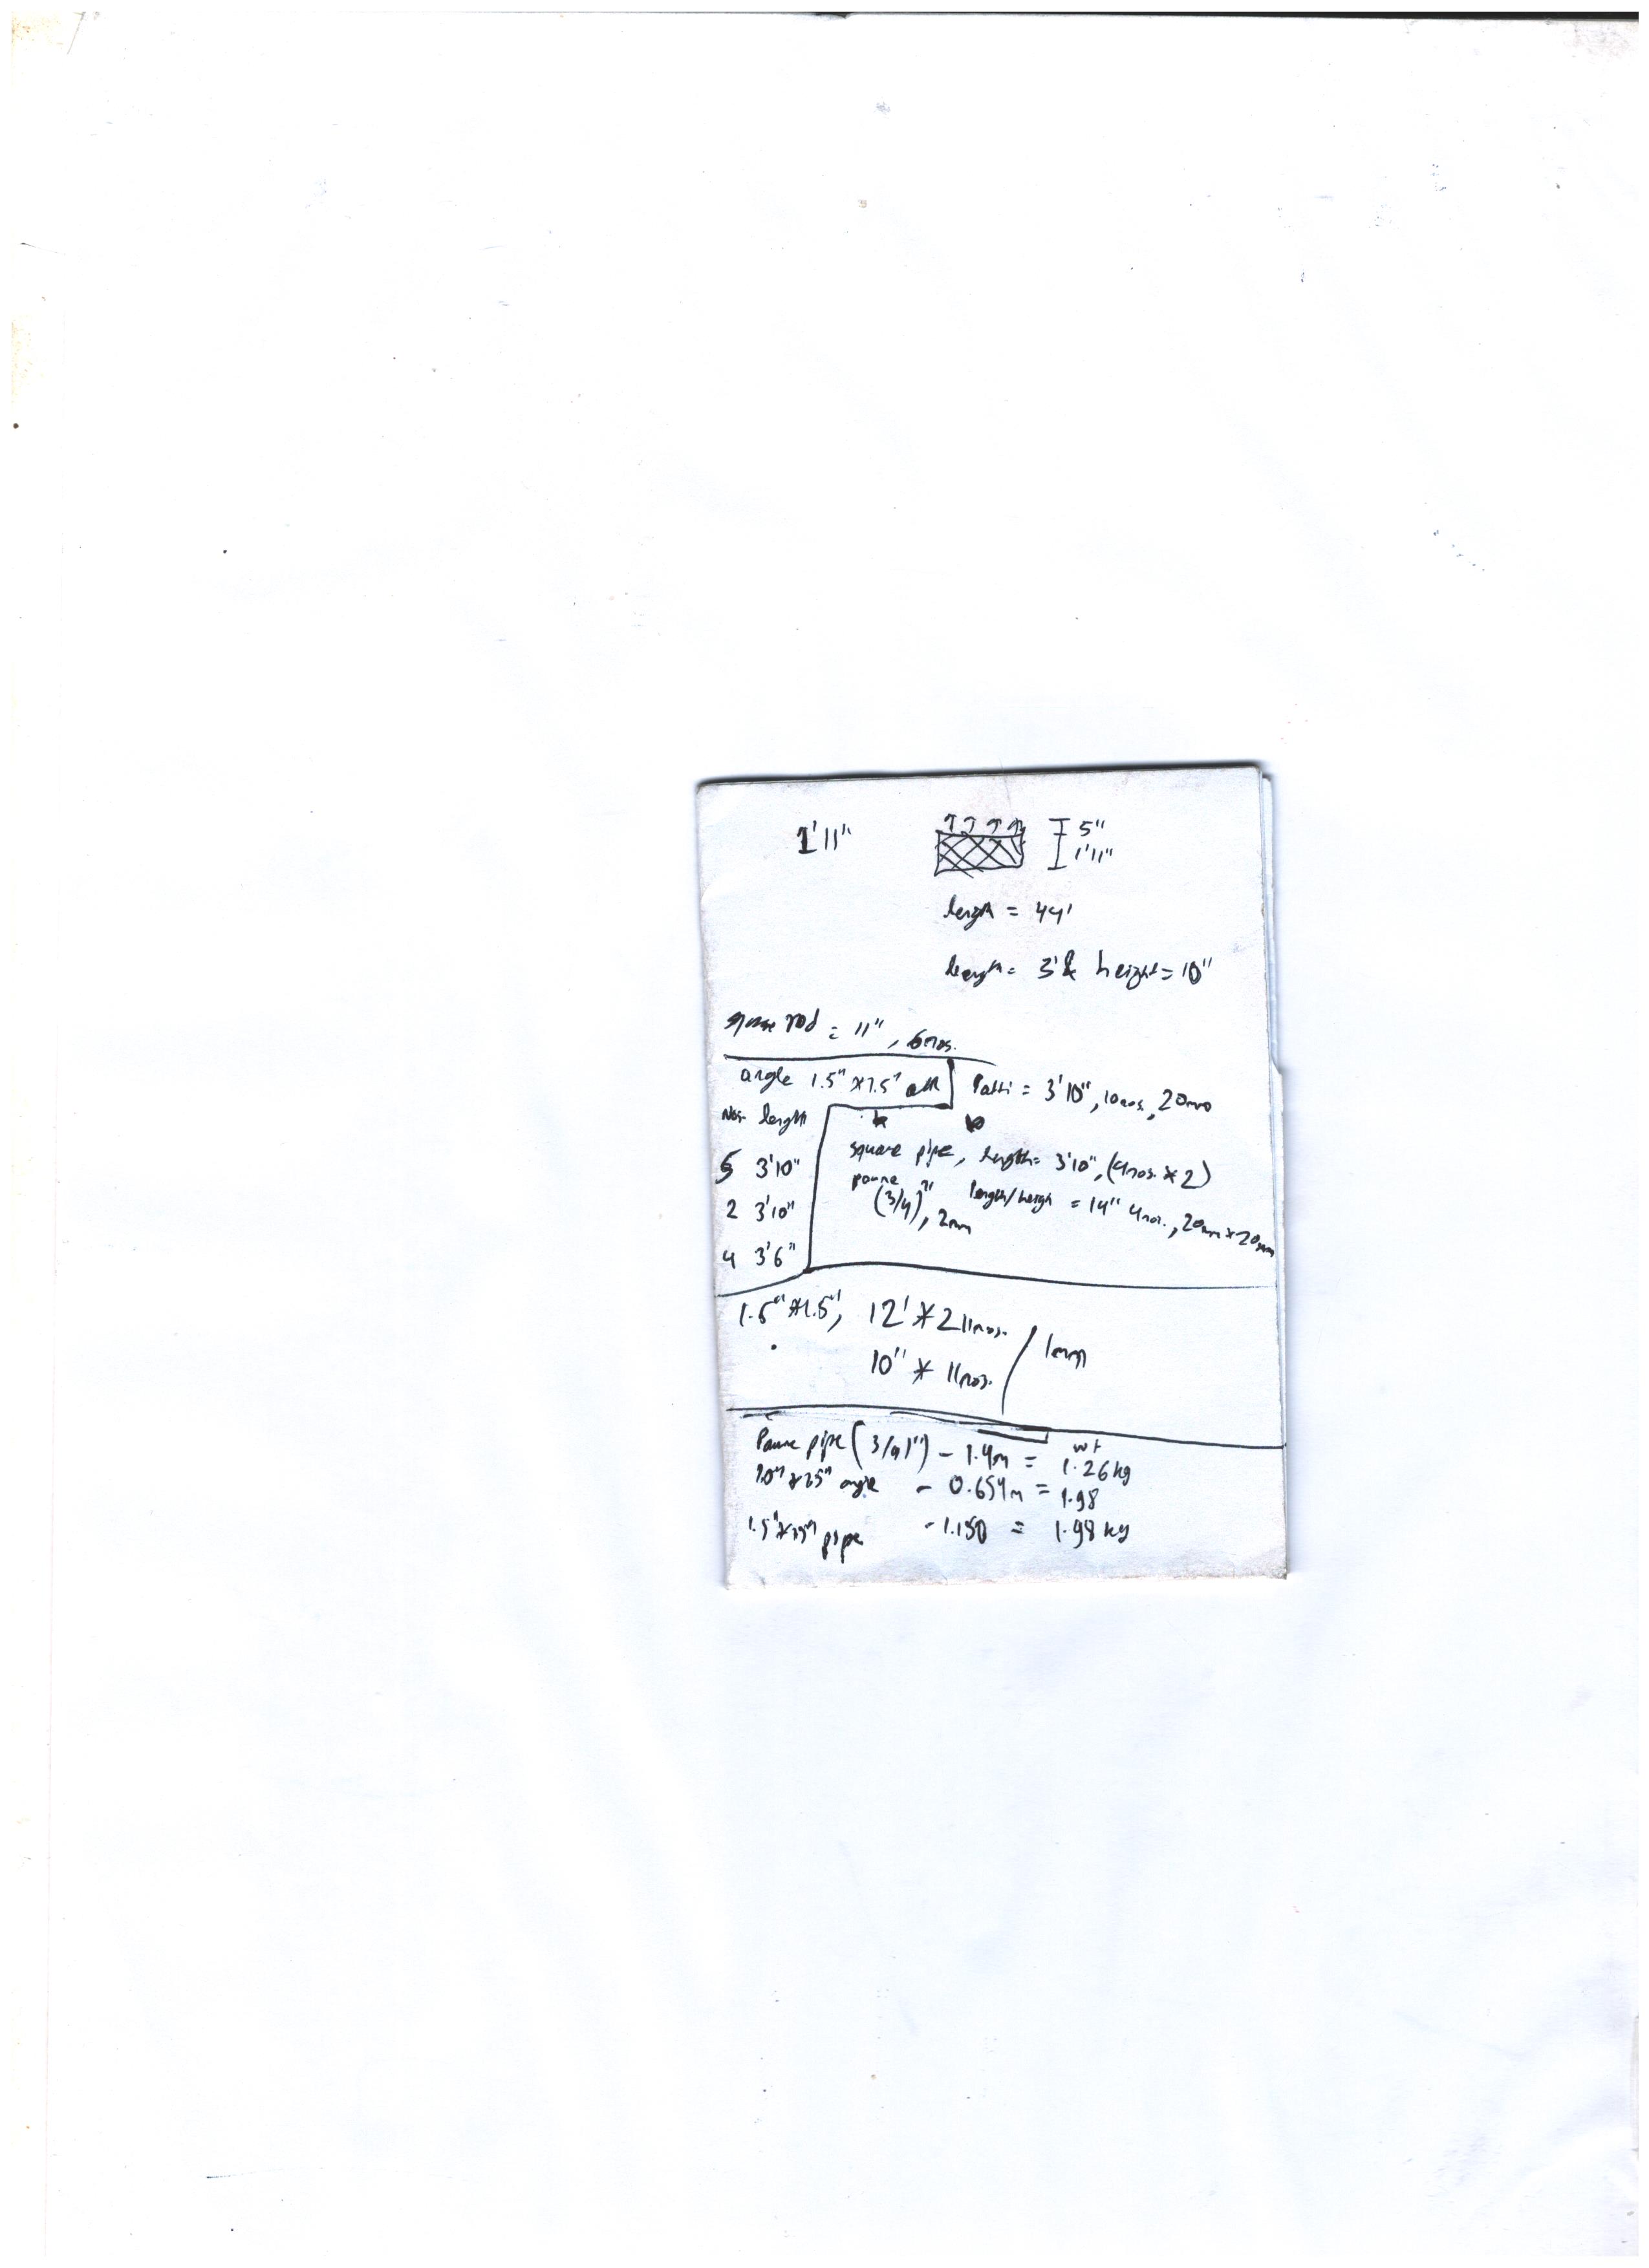 1'11"
5"
1'11"
length = 44'
length = 3' & height = 10"
square rod = 11", 6nos.
angle 1.5" * 1.5"
Patti = 3'10", 10nos., 20mm
Nos. length
5 3'10"
2 3'10"
4 3'6"
square pipe, length = 3'10", (4nos. * 2)
paune (3/4)", 2mm
length/heigh = 14" 4nos., 20mm * 20mm
1.5" * 1.5", 12' * 2 11nos.
10" * 11nos.
1mm
wt
Paune pipe (3/4)") - 1.4m = 1.26 kg
angle - 0.654m = 1.98
pipe - 1.150 = 1.98 kg